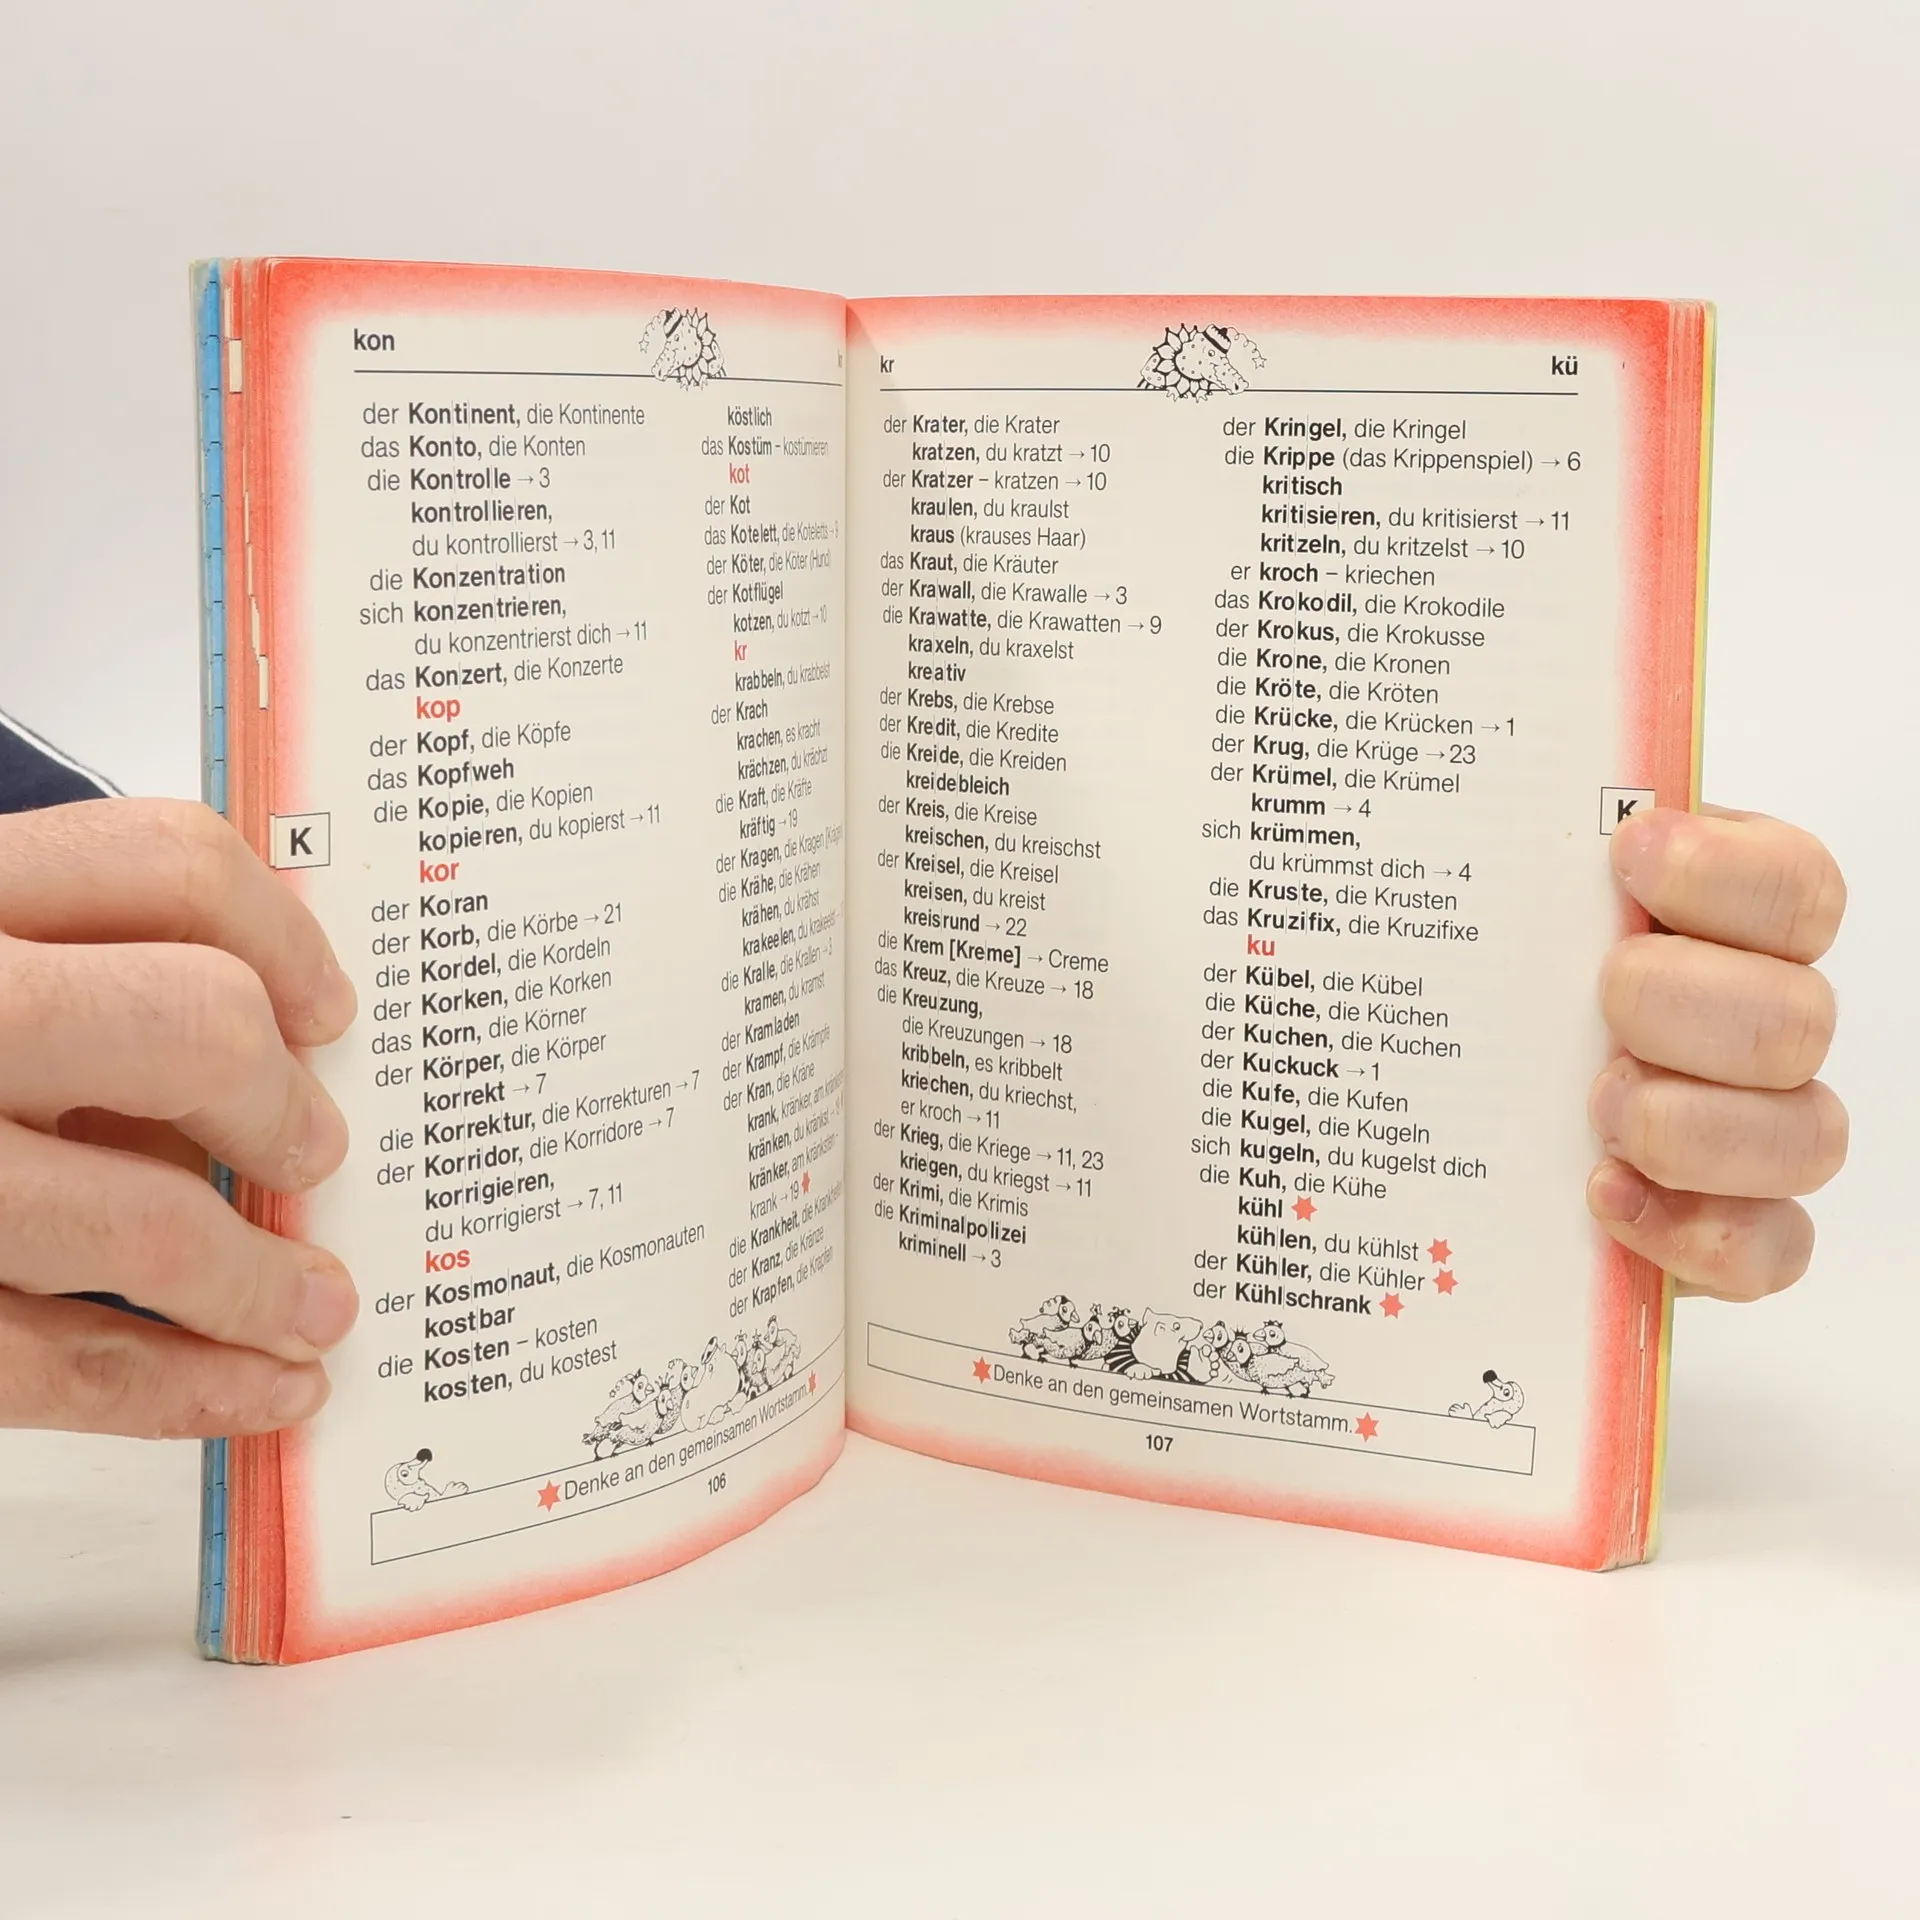 kon
der Kontinent, die Kontinente
das Konto, die Konten
die Kontrolle → 3
kontrollieren,
du kontrollierst → 3, 11
die Konzentration
sich konzentrieren,
du konzentrierst dich → 11
das Konzert, die Konzerte
kop
der Kopf, die Köpfe
das Kopfweh
die Kopie, die Kopien
kopieren, du kopierst → 11
kor
der Koran
der Korb, die Körbe → 21
die Kordel, die Kordeln
der Korken, die Korken
das Korn, die Körner
der Körper, die Körper
korrekt → 7
die Korrektur, die Korrekturen → 7
der Korridor, die Korridore → 7
korrigieren,
du korrigierst → 7, 11
kos
der Kosmonaut, die Kosmonauten
kostbar
die Kosten – kosten
kosten, du kostest
köstlich
das Kostüm – kostümieren
kot
der Kot
das Kotelett, die Koteletts → 9
der Köter, die Köter (Hund)
der Kotflügel
kotzen, du kotzt → 10
kr
krabbeln, du krabbelst
der Krach
krachen, es kracht
krächzen, du krächzt
die Kraft, die Kräfte
kräftig → 19
der Kragen, die Kragen
die Krähe, die Krähen
krähen, du krähst
krakeelen, du krakeelst
die Kralle, die Krallen → 3
kramen, du kramst
der Kramladen
der Krampf, die Krämpfe
der Kran, die Kräne
krank, kränker, am
kränken, du kränkst →
kränker, am kränksten –
krank → 19
die Krankheit, die
der Kranz, die Kränze
der Krapfen, die Krapfen
K
Denke an den gemeinsamen Wortstamm.
106
kr
kü
der Krater, die Krater
kratzen, du kratzt → 10
der Kratzer – kratzen → 10
kraulen, du kraulst
kraus (krauses Haar)
das Kraut, die Kräuter
der Krawall, die Krawalle → 3
die Krawatte, die Krawatten → 9
kraxeln, du kraxelst
kreativ
der Krebs, die Krebse
der Kredit, die Kredite
die Kreide, die Kreiden
kreidebleich
der Kreis, die Kreise
kreischen, du kreischst
der Kreisel, die Kreisel
kreisen, du kreist
kreisrund → 22
die Krem [Kreme] → Creme
das Kreuz, die Kreuze → 18
die Kreuzung,
die Kreuzungen → 18
kribbeln, es kribbelt
kriechen, du kriechst,
er kroch → 11
der Krieg, die Kriege → 11, 23
kriegen, du kriegst → 11
der Krimi, die Krimis
die Kriminalpolizei
kriminell → 3
der Kringel, die Kringel
die Krippe (das Krippenspiel) → 6
kritisch
kritisieren, du kritisierst → 11
kritzeln, du kritzelst → 10
er kroch – kriechen
das Krokodil, die Krokodile
der Krokus, die Krokusse
die Krone, die Kronen
die Kröte, die Kröten
die Krücke, die Krücken → 1
der Krug, die Krüge → 23
der Krümel, die Krümel
krumm → 4
sich krümmen,
du krümmst dich → 4
die Kruste, die Krusten
das Kruzifix, die Kruzifixe
ku
der Kübel, die Kübel
die Küche, die Küchen
der Kuchen, die Kuchen
der Kuckuck → 1
die Kufe, die Kufen
die Kugel, die Kugeln
sich kugeln, du kugelst dich
die Kuh, die Kühe
kühl
kühlen, du kühlst
der Kühler, die Kühler
der Kühlschrank
K
Denke an den gemeinsamen Wortstamm.
107